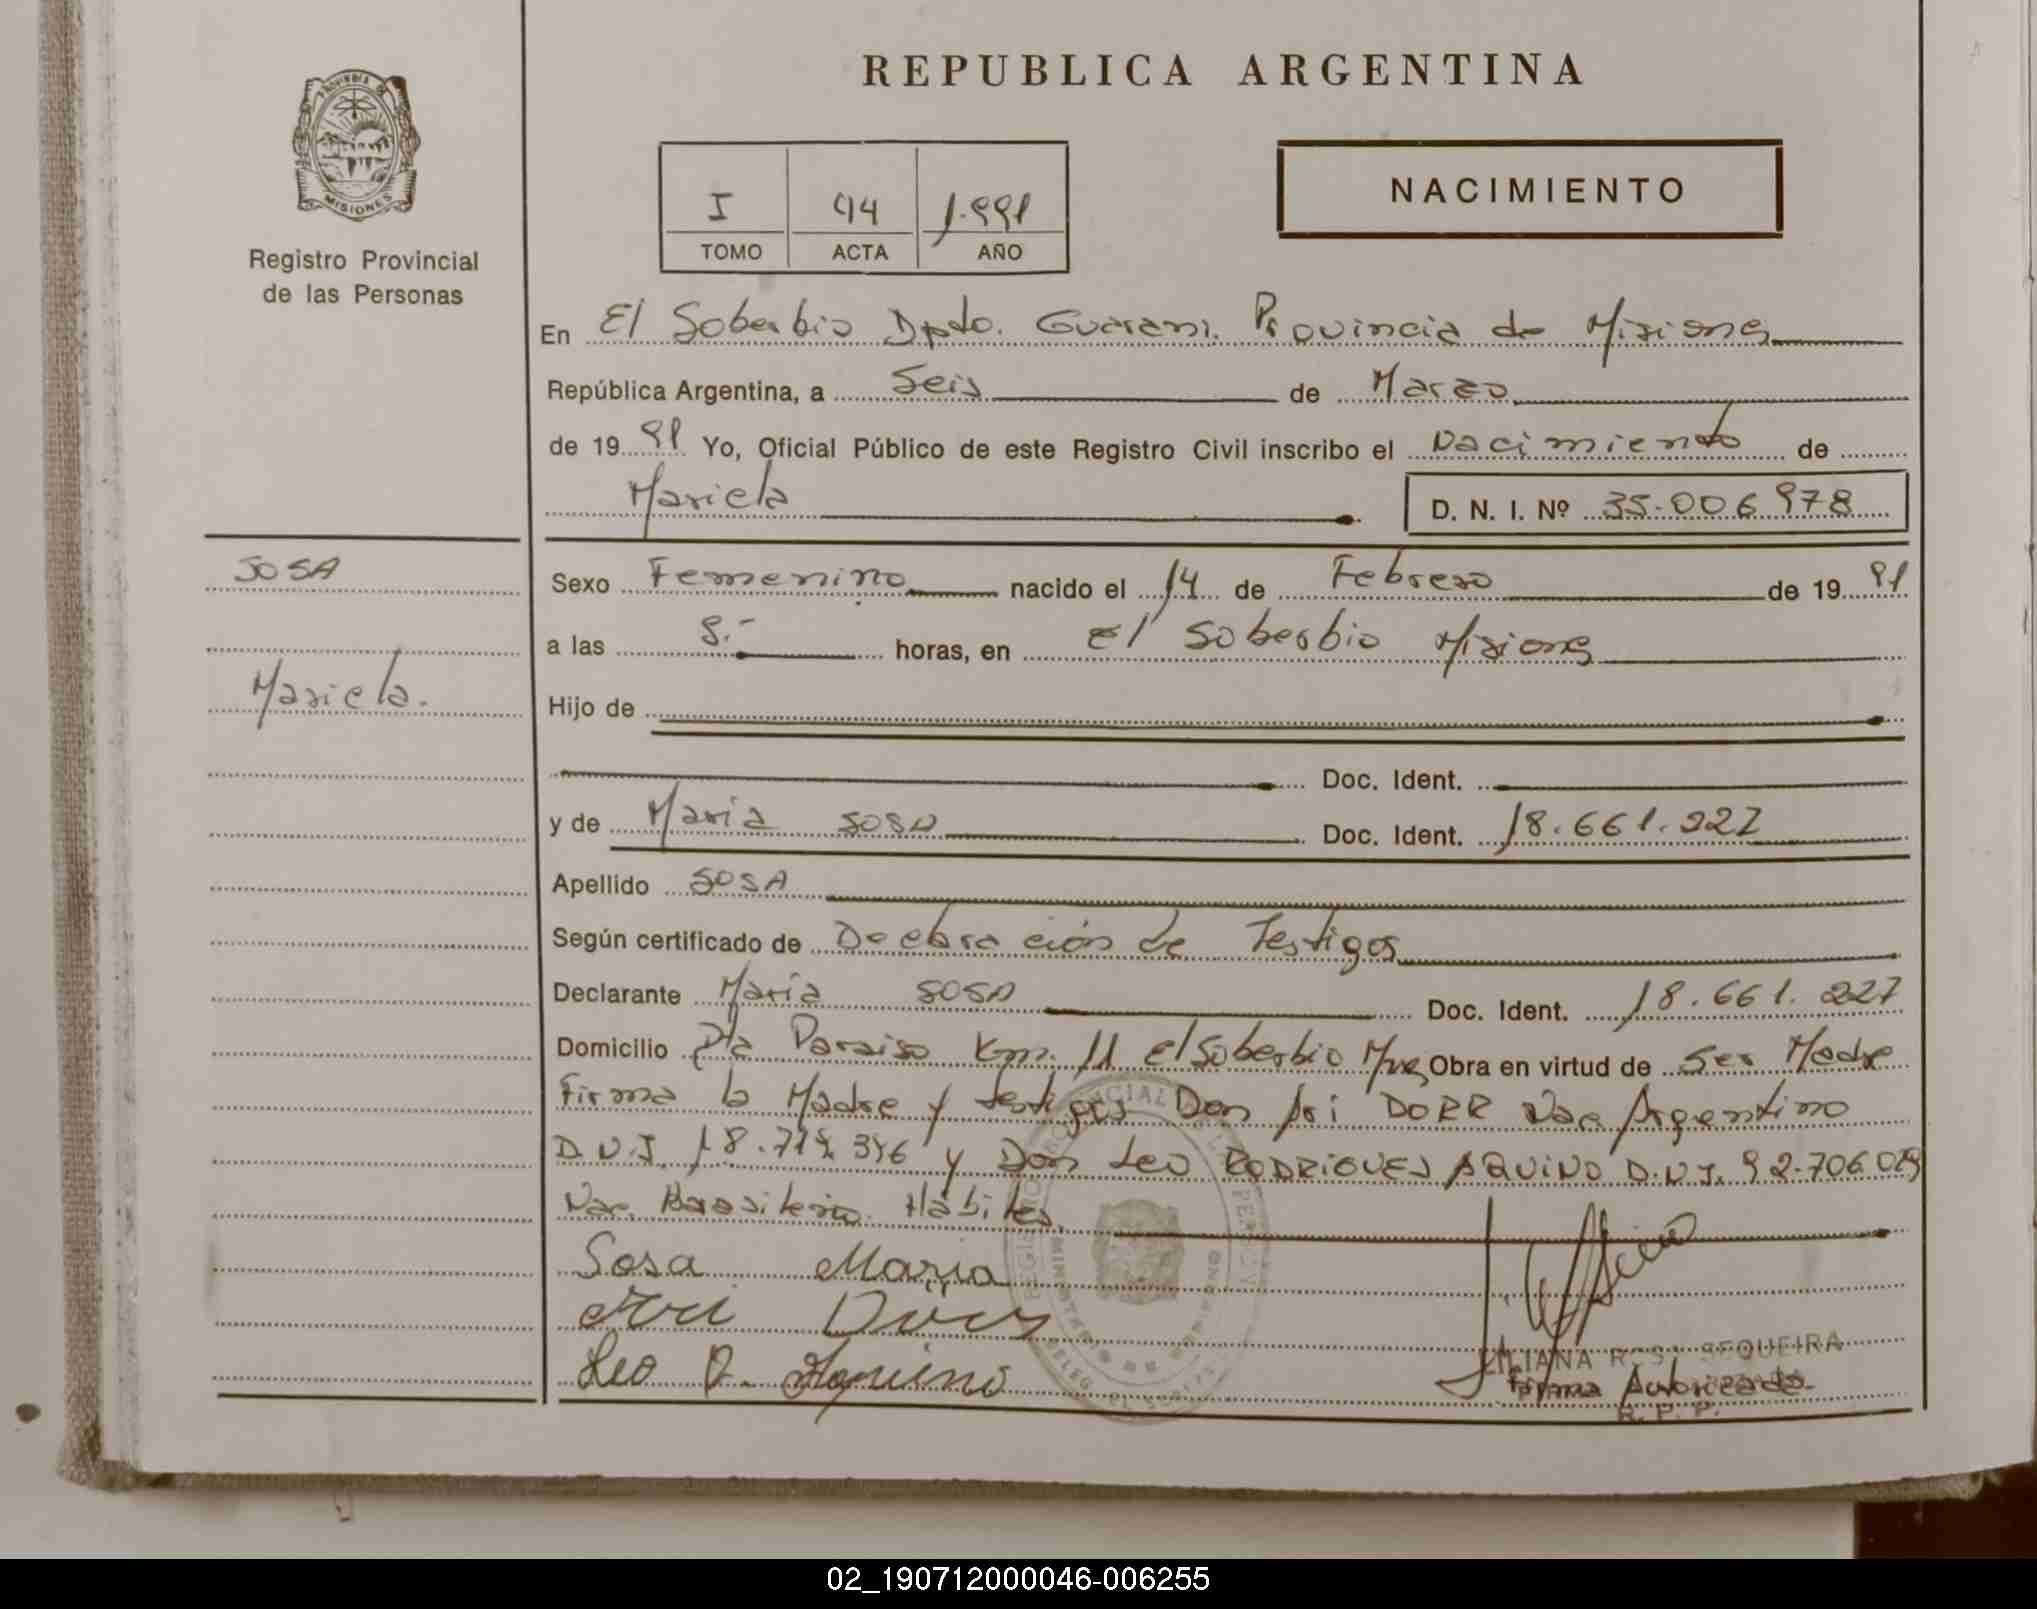 REPUBLICA ARGENTINA
PROVINCIA DE
MISIONES
Registro Provincial
de las Personas
I 44 1.991
TOMO ACTA AÑO
NACIMIENTO
En El Soberbio Dpto. Guarani. Provincia de Misiones
República Argentina, a Seis de Marzo
de 1991 Yo, Oficial Público de este Registro Civil inscribo el Nacimiento de
Mariela D. N. I. Nº 35.006.978
SOSA
Sexo Femenino nacido el 14 de Febrero de 1991
a las 8.- horas, en El Soberbio Misiones
Mariela.
Hijo de
Doc. Ident.
y de Maria SOSA Doc. Ident. 18.661.227
Apellido SOSA
Según certificado de Declaración de Testigos
Declarante Maria SOSA Doc. Ident. 18.661.227
Domicilio Paraiso Km. 11 El Soberbio Mnes Obra en virtud de Ser Madre
Firma la Madre y testigos Don Ari DORR Nac Argentino
D.N.I. 18. y Don Leo RODRIGUES AQUINO D.N.I. 92.706.029
Nac. Brasilero. Hábiles.
Sosa Maria
Ari Dörr
Leo R. Aquino
LILIANA ROSA SEQUEIRA
Firma Autorizada
R. P. P.
02_190712000046-006255